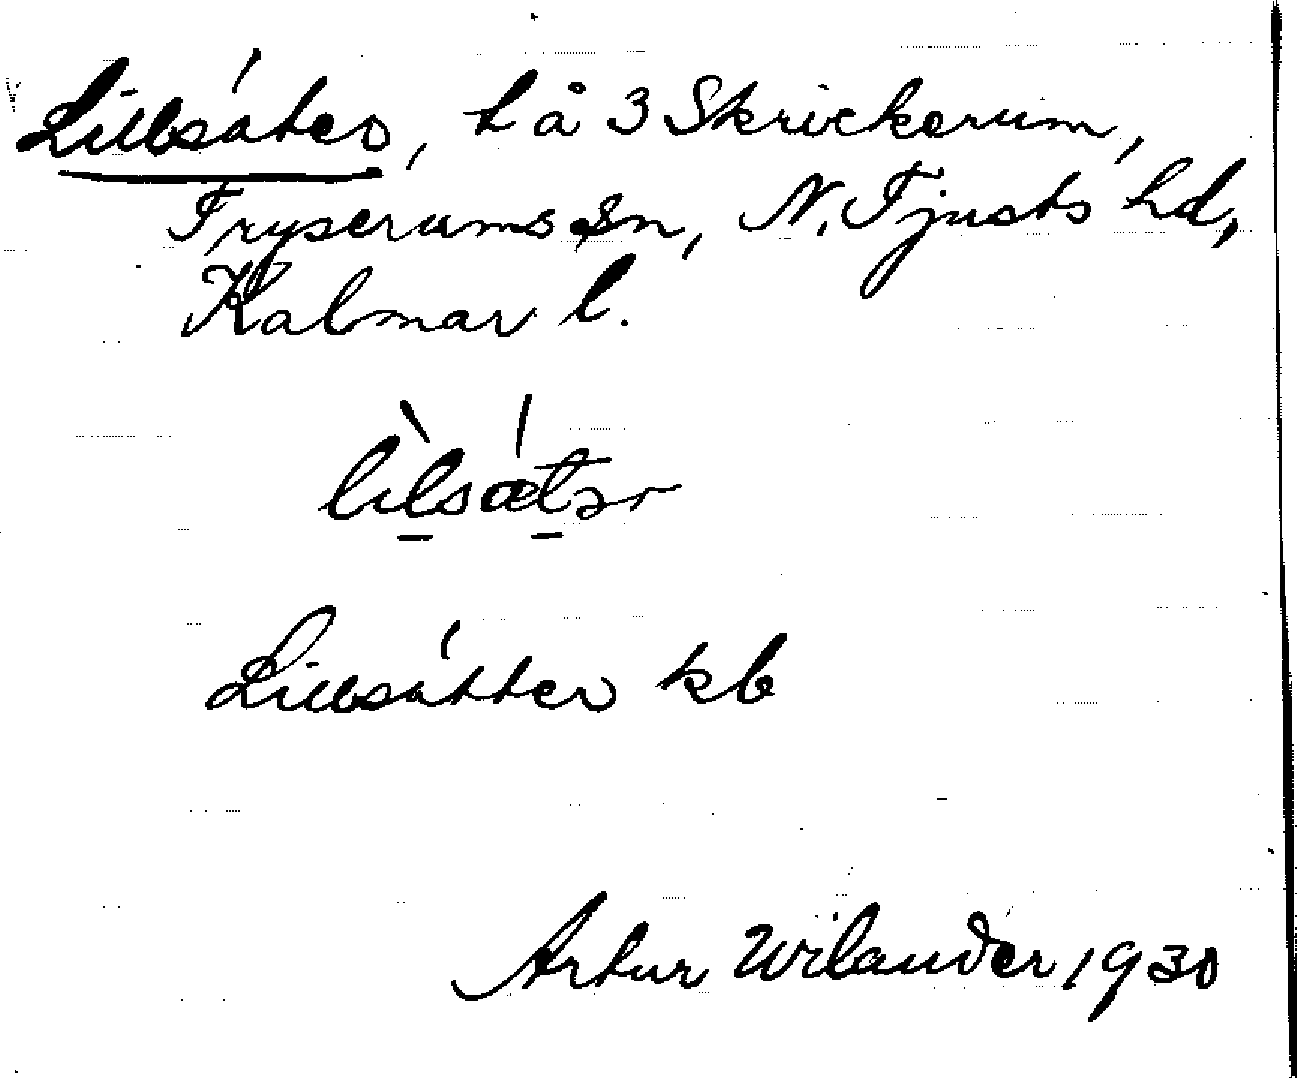 Lillsäter, t å 3 Skrickerum,
Fryserums sn, N. Tjusts hd,
Kalmar l.
lìlsǽtər
Lillsätter kb
Artur Wilander 1930